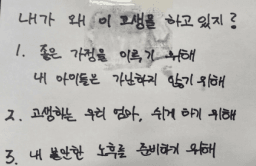 내가 왜 이 고생을 하고있지?
1. 좋은 가정을 이르기 위해
내 아이들은 가난하지 않기 위해
2. 고생하는 우리 엄마, 쉬게 하기 위해
3. 내 불안한 노후를 준비하기 위해